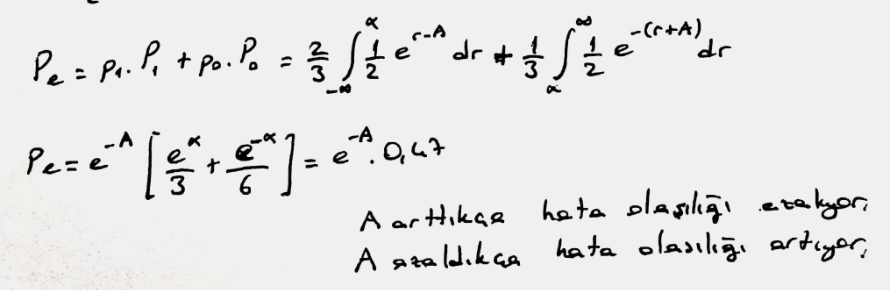 Pe = p₁.P₁ + p₀.P₀ = 2/3 ∫_{-∞}^{α} 1/2 e^{r-A} dr + 1/3 ∫_{α}^{∞} 1/2 e^{-(r+A)} dr
Pe = e^{-A} [ e^{α}/3 + e^{-α}/6 ] = e^{-A} . 0,47
A arttıkça hata olasılığı azalıyor,
A azaldıkça hata olasılığı artıyor,